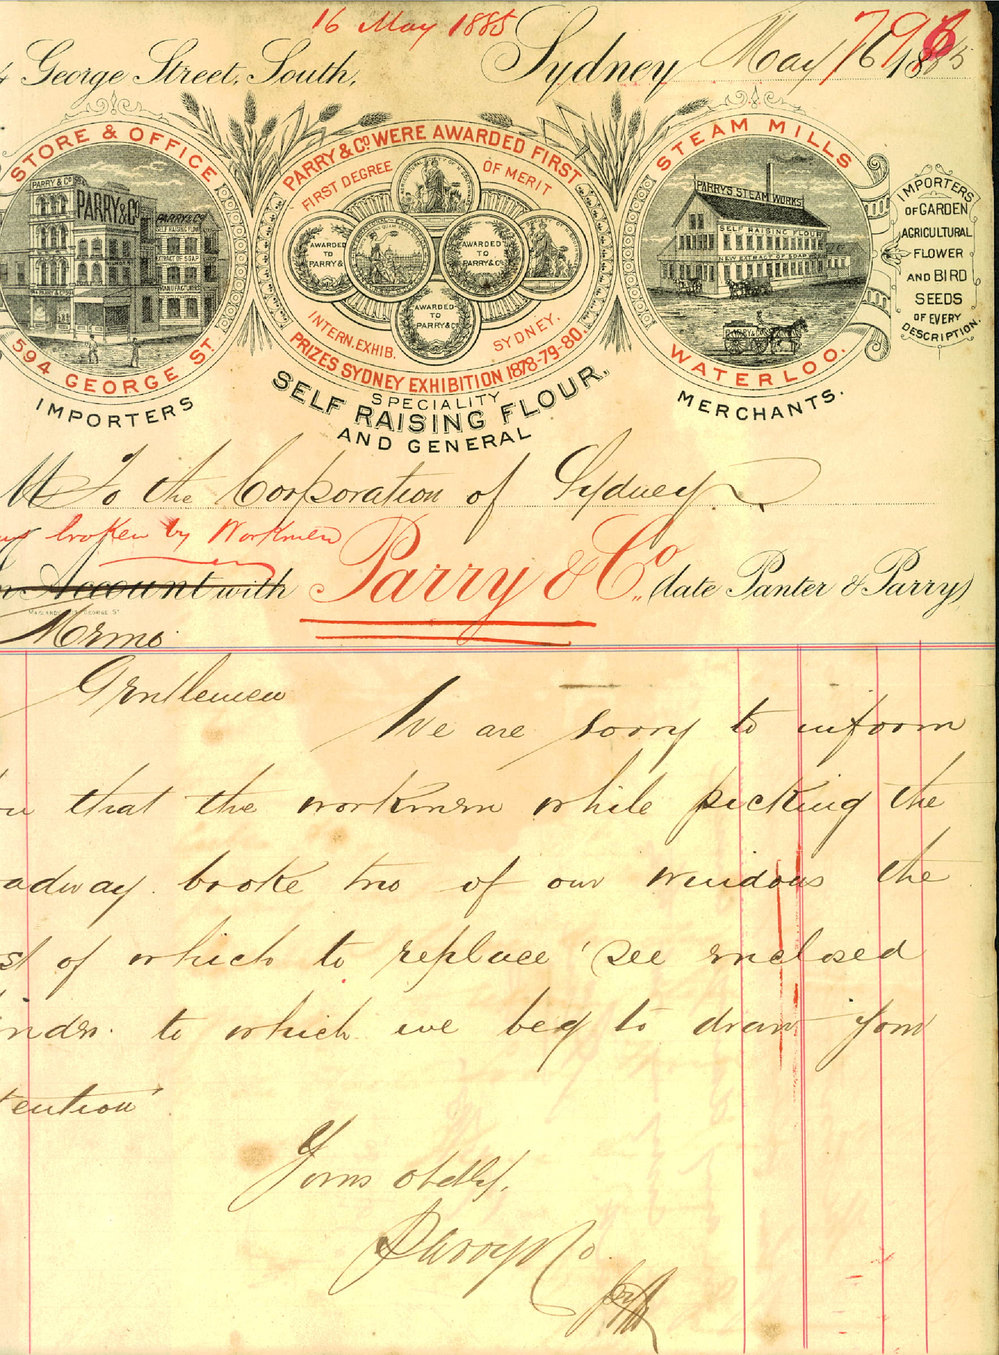 16 May 1885
4 George Street, South,
Sydney May 16 1885
796
STORE & OFFICE
PARRY & Co
PARRY & Co
PARRY & Co
SELF RAISING FLOUR
EXTRACT OF SOAP
MANUFACTURERS
594 GEORGE ST.
IMPORTERS
PARRY & Co WERE AWARDED FIRST
FIRST DEGREE OF MERIT
AWARDED TO PARRY &
AWARDED TO PARRY & Co
AWARDED TO PARRY & Co
INTERN. EXHIB. SYDNEY.
PRIZES SYDNEY EXHIBITION 1878-79-80.
SPECIALITY
SELF RAISING FLOUR.
AND GENERAL
STEAM MILLS
PARRYS STEAM WORKS
SELF RAISING FLOUR
NEW EXTRACT OF SOAP
PARRY & Co
WATERLOO.
MERCHANTS.
IMPORTERS
OF GARDEN
AGRICULTURAL
FLOWER
AND BIRD
SEEDS
OF EVERY
DESCRIPTION.
M To the Corporation of Sydney.
broken by Workmen
In Account with Parry & Co., (late Panter & Parry)
GEORGE St
Memo.
Gentlemen
We are sorry to inform
you that the workmen while picking the
oadway. broke two of our windows the
st of which to replace see enclosed
to which we beg to draw your
tention
Yours obdly,
Parry & Co